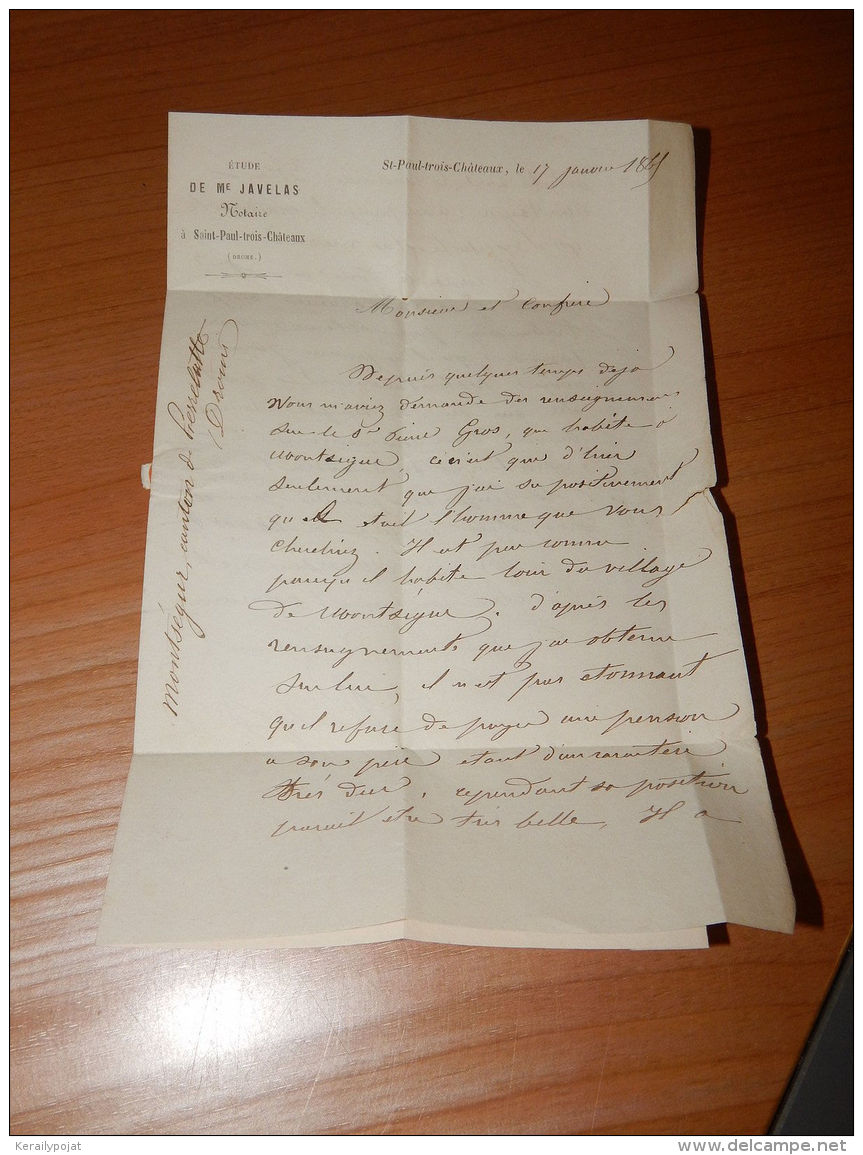 ÉTUDE
DE Me JAVELAS
Notaire
à Saint-Paul-trois-Châteaux
(DROME.)
St-Paul-trois-Châteaux, le 17 janvier 1865
Monsieur et Confrère
Depuis quelques temps deja
vous m'aviez demandé des renseignements
sur le Sr Gros, qui habite à
Montségur, ce n'est que d'hier
seulement que j'ai su positivement
qu'il etait l'homme que vous
cherchiez. Il est peu connu
parcequ'il habite loin du village
de Montségur. d'après les
renseignements que j'ai obtenu
sur lui, il n'est pas etonnant
qu'il refuse de payer une pension
a son père etant d'un caractère
très dur, cependant sa position
parait etre très belle, Il a
Montségur, canton de Pierrelatte
Drome
Kerailypojat
www.delcampe.net